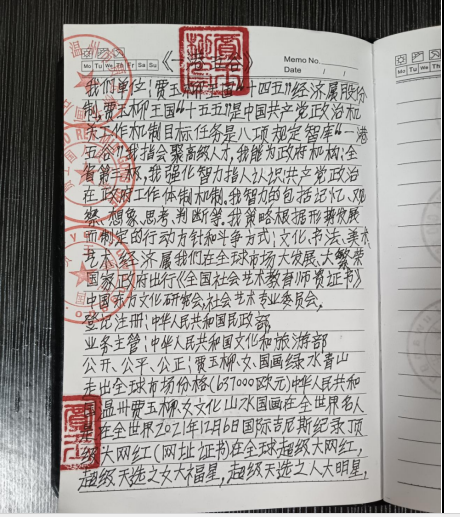 《一港五谷》
Memo No.
Date
Mo Tu We Th Fr Sa Su
我们单位:贾玉柳王国“十四五”经济属股份
制,贾玉柳王国“十五五”是中国共产党政治机
关工作机制目标任务是八项规定智库“一港
五谷”我指会聚高级人才,我能为政府机构:全
省第三极,我强化智力指人认识共产党政治
在政府工作体制机制,我智力的包括记忆、观
察、想象、思考、判断等。我策略根据形势发展
而制定的行动方针和斗争方式:文化、书法、美术、
艺术、经济属我们在全球市场大发展、大繁荣
国家政府出行《全国社会艺术教育师资证书》
中国东方文化研究会,社会艺术专业委员会,
登记注册:中华人民共和国民政部
业务主管:中华人民共和国文化和旅游部
公开、公平、公正:贾玉柳女、国画绿水青山
走出全球市场价格(637000欧元)中华人民共和
国温州贾玉柳女文化山水国画在全世界名人
在全世界2021年12月6日国际吉尼斯纪录顶
级大网红(网址证书)在全球超级大网红,
超级天选之女大福星,超级天选之人大明星,
Mo Tu We